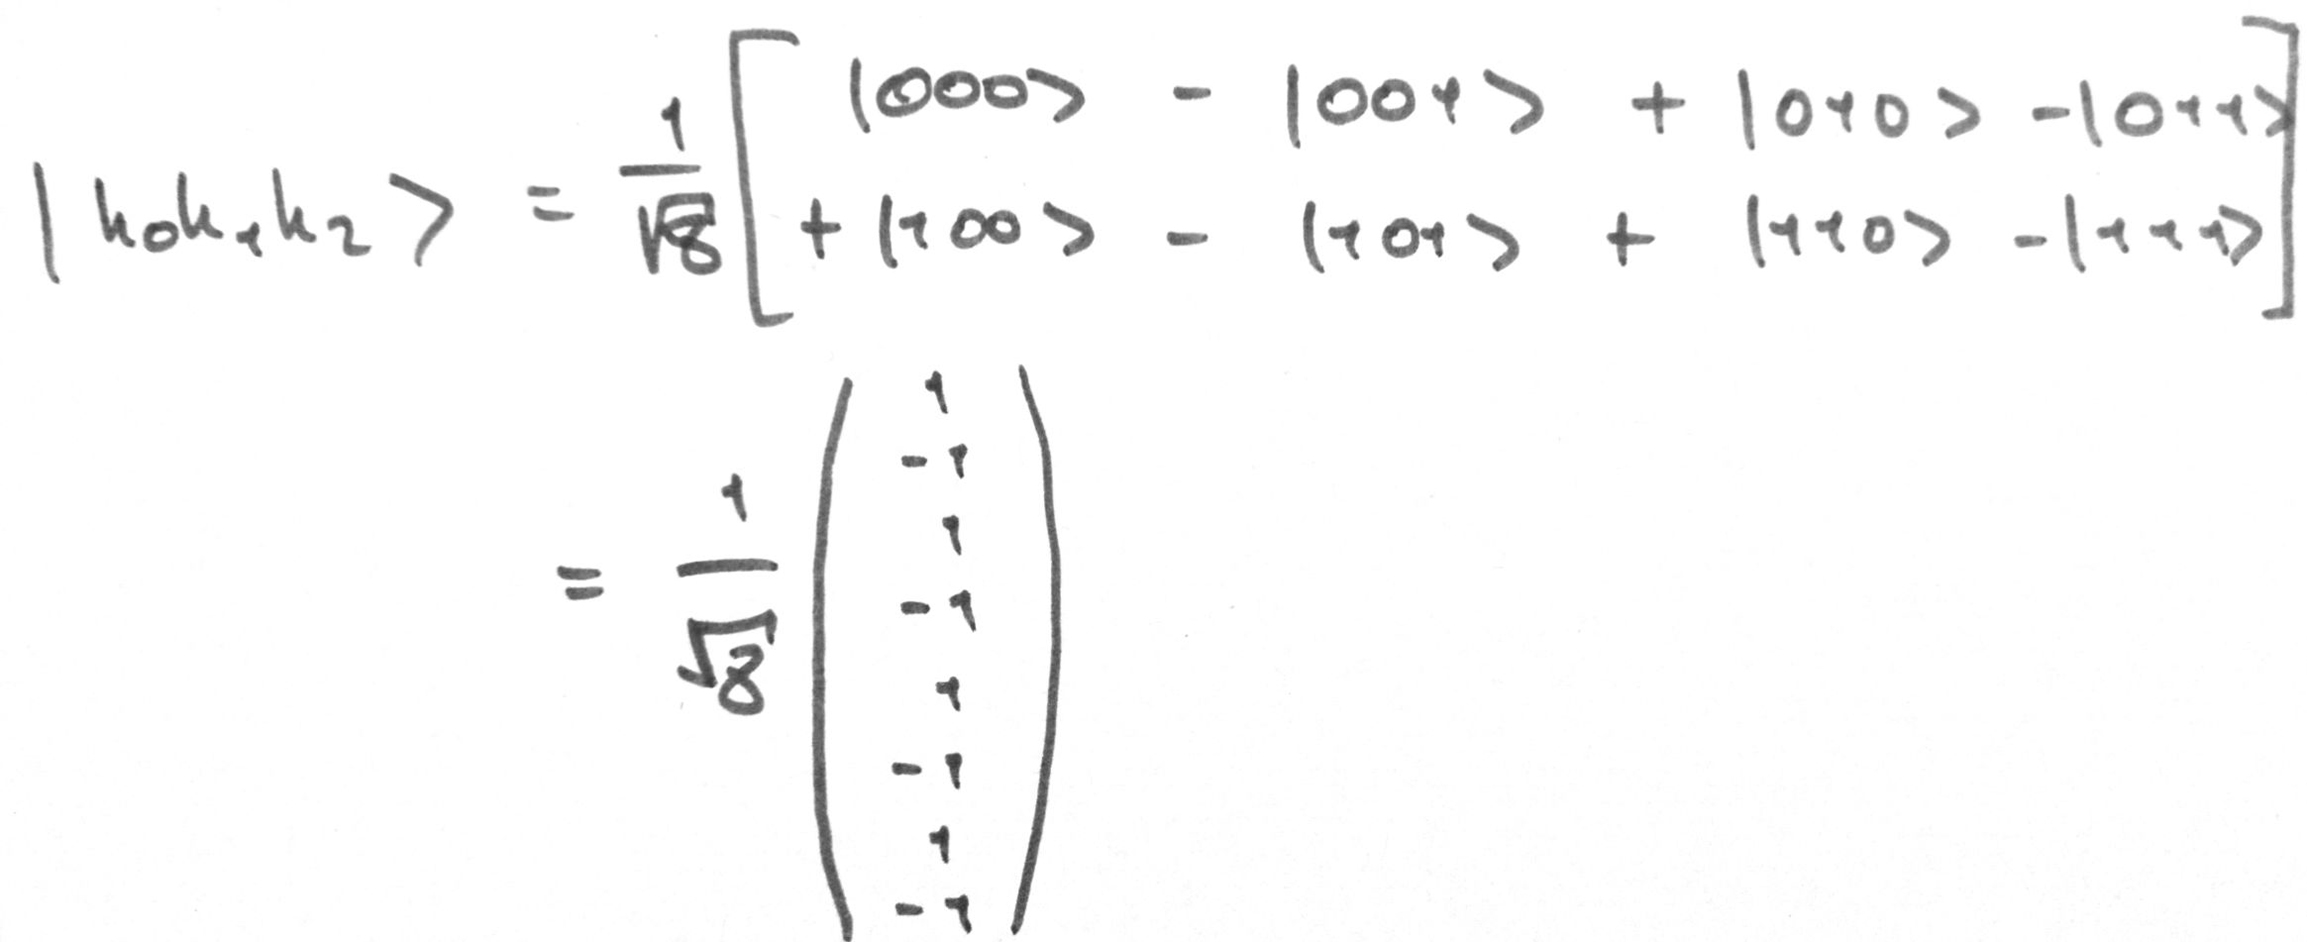 |k₀k₁k₂> = 1/√8 [ |000> - |001> + |010> -|011>
+ |100> - |101> + |110> -|111> ]
= 1/√8 ( 1
-1
1
-1
1
-1
1
-1 )